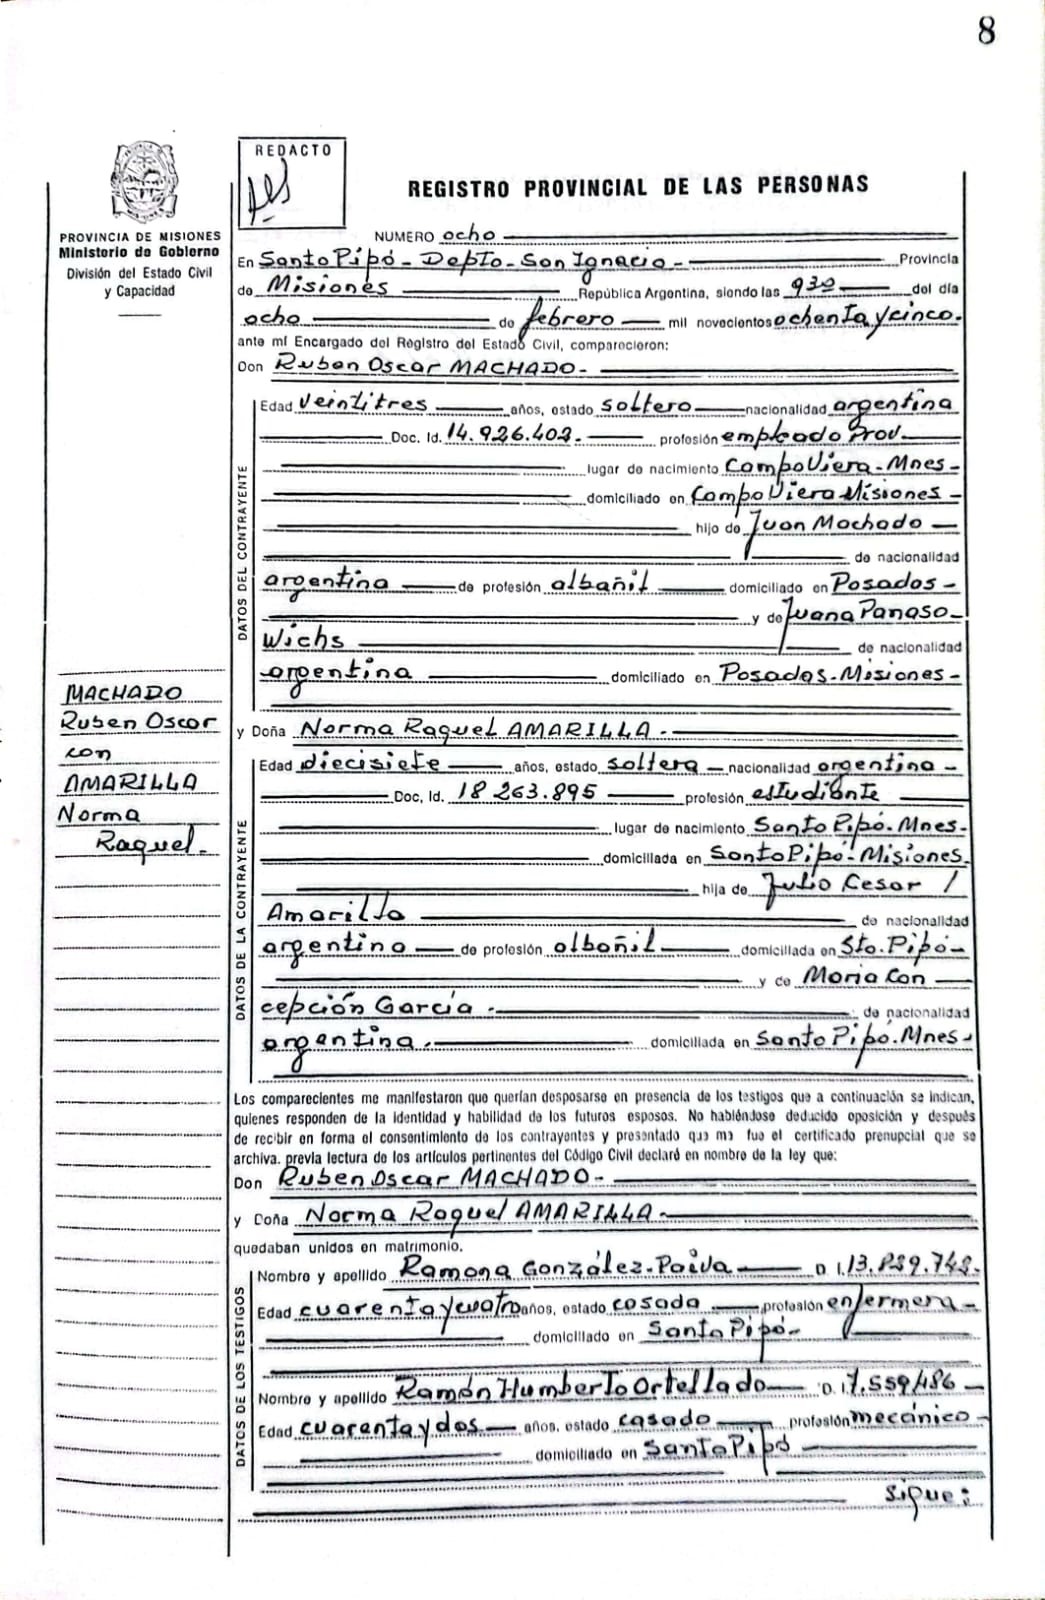 8
REDACTO
REGISTRO PROVINCIAL DE LAS PERSONAS
PROVINCIA DE MISIONES
Ministerio de Gobierno
División del Estado Civil
y Capacidad
NUMERO ocho
En Santo Pipó - Depto - San Ignacio - Provincia
de Misiones República Argentina, siendo las 930 del día
ocho de febrero mil novecientos ochenta y cinco.
ante mí Encargado del Registro del Estado Civil, comparecieron:
Don Ruben Oscar MACHADO -
DATOS DEL CONTRAYENTE
Edad veintitres años, estado soltero nacionalidad argentina
Doc. Id. 14.926.402. profesión empleado Prov.
lugar de nacimiento Campo Viera - Mnes -
domiciliado en Campo Viera Misiones -
hijo de Juan Machado -
de nacionalidad
argentina de profesión albañil domiciliado en Posadas -
y de Juana Panaso
Wichs de nacionalidad
argentina domiciliado en Posadas - Misiones -
MACHADO
Ruben Oscar
con
AMARILLA
Norma
Raquel.
y Doña Norma Raquel AMARILLA -
DATOS DE LA CONTRAYENTE
Edad diecisiete años, estado soltera - nacionalidad argentina -
Doc. Id. 18 263.895 profesión estudiante
lugar de nacimiento Santo Pipó. Mnes -
domiciliada en Santo Pipó - Misiones.
hija de Julio Cesar /
Amarilla de nacionalidad
argentino de profesión albañil domiciliada en Sto. Pipó -
y de Maria Con
cepción García - de nacionalidad
argentina. domiciliada en Santo Pipó. Mnes -
Los comparecientes me manifestaron que querían desposarse en presencia de los testigos que a continuación se indican,
quienes responden de la identidad y habilidad de los futuros esposos. No habiéndose deducido oposición y después
de recibir en forma el consentimiento de los contrayentes y presentado que me fue el certificado prenupcial que se
archiva. previa lectura de los artículos pertinentes del Código Civil declaré en nombre de la ley que:
Don Ruben Oscar MACHADO -
y Doña Norma Raquel AMARILLA -
quedaban unidos en matrimonio.
DATOS DE LOS TESTIGOS
Nombre y apellido Ramona González - Paiva D. I.
Edad cuarenta y cuatro años, estado casada profesión enfermera -
domiciliado en Santo Pipó -
Nombre y apellido Ramón Humberto Ortellado D. I. 7.559,186 -
Edad cuarenta y dos años. estado casado profesión mecánico -
domiciliado en Santo Pipó
Sigue: